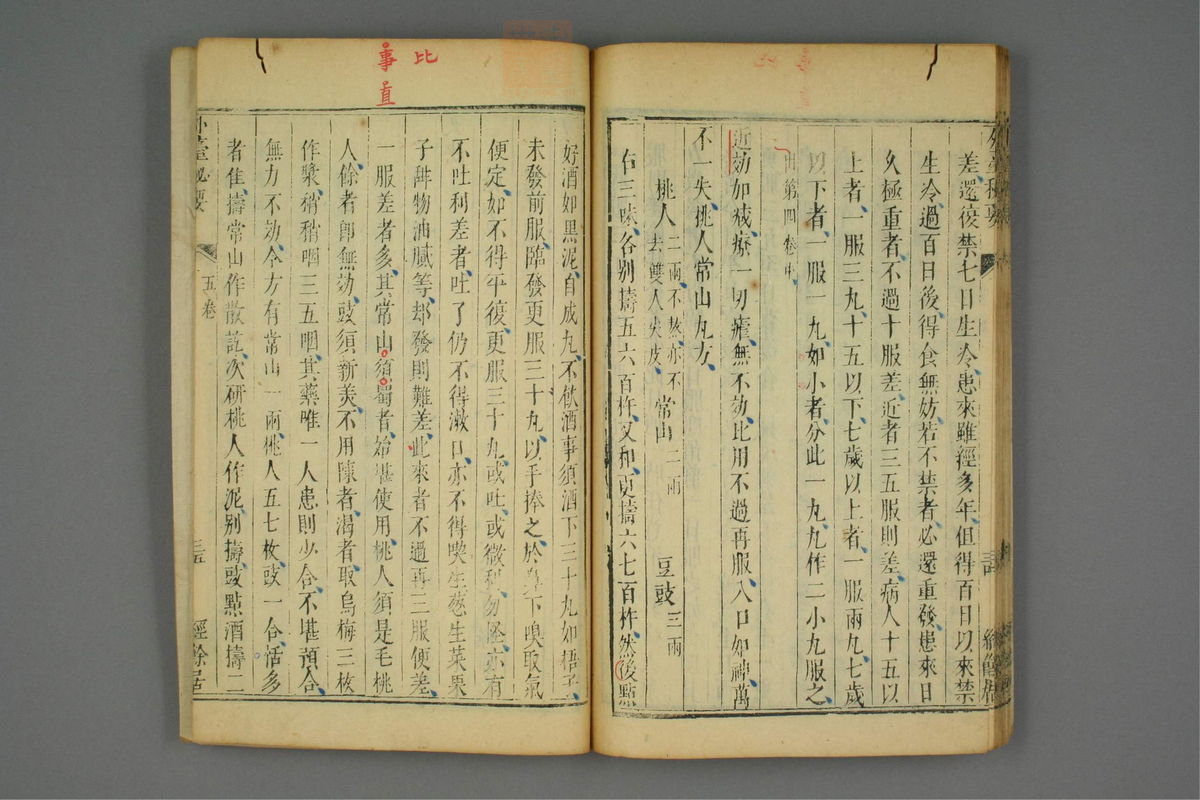 差還後禁七日生冷患來雖經多年但得百日以來禁
生冷過百日後得食無妨若不禁者必還重發患來日
久極重者不過十服差近者三五服則差病人十五以
上者一服三丸十五以下七歲以上者一服兩丸七歲
以下者一服一丸如小者分此一丸丸作二小丸服之
出第四卷中
近効加减療一切瘧無不効比用不過再服入口如神萬
不一失桃人常山丸方
桃人二兩不熬亦不去雙人尖皮 常山二兩 豆豉三兩
右三味各别擣五六百杵又和更擣六七百杵然後點
好酒如黑泥自成丸不飲酒事須酒下三十丸如梧子
未發前服臨發更服三十丸以手捧之於鼻下嗅取氣
便定如不得平復更服三十丸或吐或微利勿怪亦有
不吐利差者吐了仍不得漱口亦不得喫生葱生菜果
子甜物油膩等却發則難差此來者不過再三服便差
一服差者多其常山須蜀者始堪使用桃人須是毛桃
人餘者即無効豉須新美不用陳者渴者取烏梅三枚
作漿稍稍咽三五咽其藥唯一人患則少合不堪預合
無力不効今方有常山一兩桃人五七枚豉一合恬多
者隹擣常山作散訖次研桃人作泥别擣豉點酒擣二
外臺秘要
五卷
三五
經餘居
比
事
直